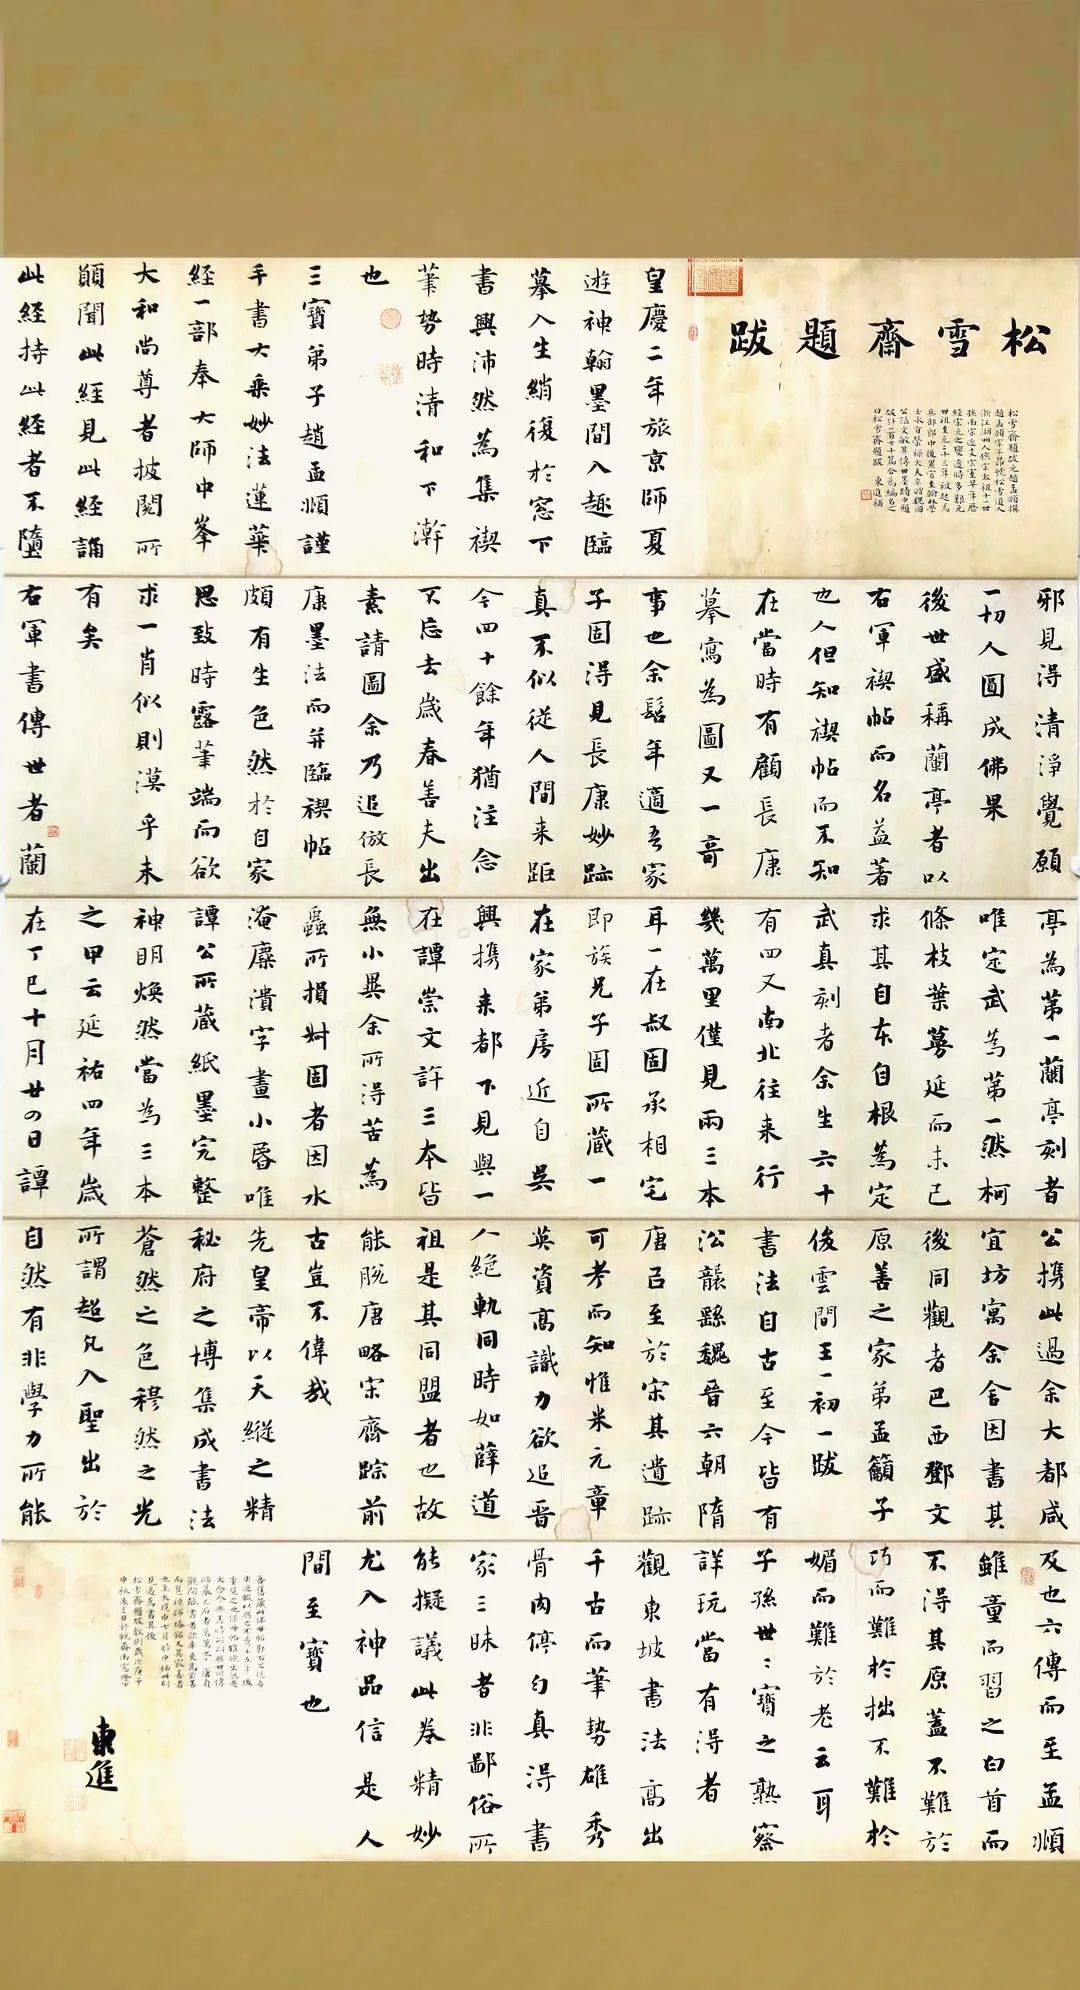 松雪齋題跋
皇慶二年旅京師夏
遊神翰墨間入趣臨
摹入生綃復於窓下
書興沛然為集禊
筆勢時清和下澣
也
三寶弟子趙孟頫謹
手書大乘妙法蓮華
經一部奉大師中峯
大和尚尊者披閱所
願聞此經見此經誦
此經持此經者不墮
邪見得清淨覺願
一切人圓成佛果
後世盛稱蘭亭者以
右軍禊帖而名益著
也人但知禊帖而不知
在當時有顧長康
摹寫為圖又一奇
事也余髫年適吾家
子固得見長康妙跡
真不似從人間来距
今四十餘年猶注念
不忘去歲春善夫出
素請圖余乃追倣長
康墨法而并臨禊帖
頗有生色然於自家
思致時露筆端而欲
求一肖似則漠乎未
有矣
右軍書傳世者蘭
亭為第一蘭亭刻者
唯定武為第一然柯
條枝葉蕚延而未已
求其自本自根為定
武真刻者余生六十
有四又南北往来行
幾萬里僅見兩三本
耳一在叔固承相宅
即族兄子固所蔵一
在家弟房近自吳
興携来都下見與一
在譚崇文許三本皆
無小異余所得苦為
蠡所損好固者因水
淹麋潰字畫小昏唯
譚公所蔵紙墨完整
神明煥然當為三本
之甲云延祐四年歲
在丁巳十月廿の日譚
公携此過余大都咸
宜坊寓余舍因書其
後同觀者巴西鄧文
原善之家弟孟籲子
俊雲間王一初一跋
書法自古至今皆有
㳂襲繇魏晉六朝隋
唐㠯至於宋其遺跡
可考而知惟米元章
英資高識力欲追晉
人絕軌同時如薛道
祖是其同盟者也故
能脫唐略宋齊踪前
古豈不偉哉
先皇帝以天縱之精
秘府之博集成書法
蒼然之色穆然之光
所謂超凡入聖出於
自然有非學力所能
及也六傳而至孟頫
雖童而習之白首而
不得其原蓋不難於
巧而難於拙不難於
媚而難於老云耳
子孫世〻寶之熟察
詳玩當有得者
觀東坡書法高出
千古而筆勢雄秀
骨肉停匀真得書
家三昧者非鄙俗所
能擬議此卷精妙
尤入神品信是人
間至寶也
東進